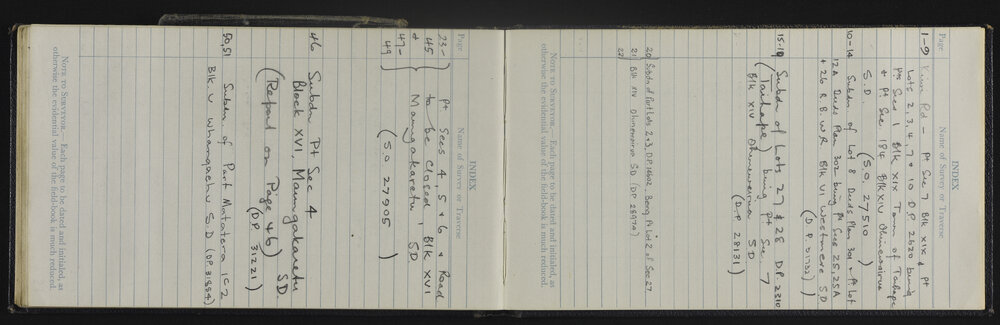 INDEX
Page
Name of Survey or Traverse
1-9 Rd - Pt Sec 7 Blk XIX & Pt
Lots 2, 3, 4, 7 & 10 D.P. 2620 being
Pt. Secs 1 Blk XIX Town of Taihape
& Pt. Sec 18 Blk XIV Ohinewairua
S.D. (S.O. 27510)
10-14 Subdn of Lot 8 Deeds Plan 301 & Pt Lot
12A Deeds Plan 302 being Pt Secs 25, 25A
& 26 R.B. W.R Blk VI Westmere S D
(D.P. )
15-19 Subdn of Lots 27 & 28 DP 2310
(Taihape) being Pt Sec 7
Blk XIV Ohinewairua SD
(DP 28131)
20 Subdn of Part Lots 2 & 3, D.P. Being Pt Lot 2 of Sec 27
21 Blk XIV Ohinewairua SD (DP 28974)
22
NOTE TO SURVEYOR.—Each page to be dated and initialed, as
otherwise the evidential value of the field-book is much reduced.
INDEX
Page
Name of Survey or Traverse
23- Pt Secs 4, 5 & 6 & Road
45 to be closed, Blk XVI
& Maungakaretu SD.
47-
49 (S.O 27905)
46 Subdn Pt Sec 4
Block XVI, Maungakaretu
SD.
(Report on Page 46)
(DP. 31221)
50, 51 Subdn of Part Matatera 1C2
Blk. V Whangaehu S.D. (D.P. 31884)
NOTE TO SURVEYOR.—Each page to be dated and initialed, as
otherwise the evidential value of the field-book is much reduced.